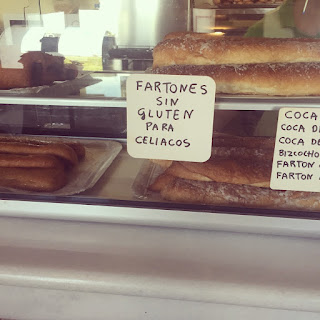 FARTONES
SIN
GLUTEN
PARA
CELIACOS
COCA
COCA DE
COCA DE
BIZCOCHO
FARTON
FARTON